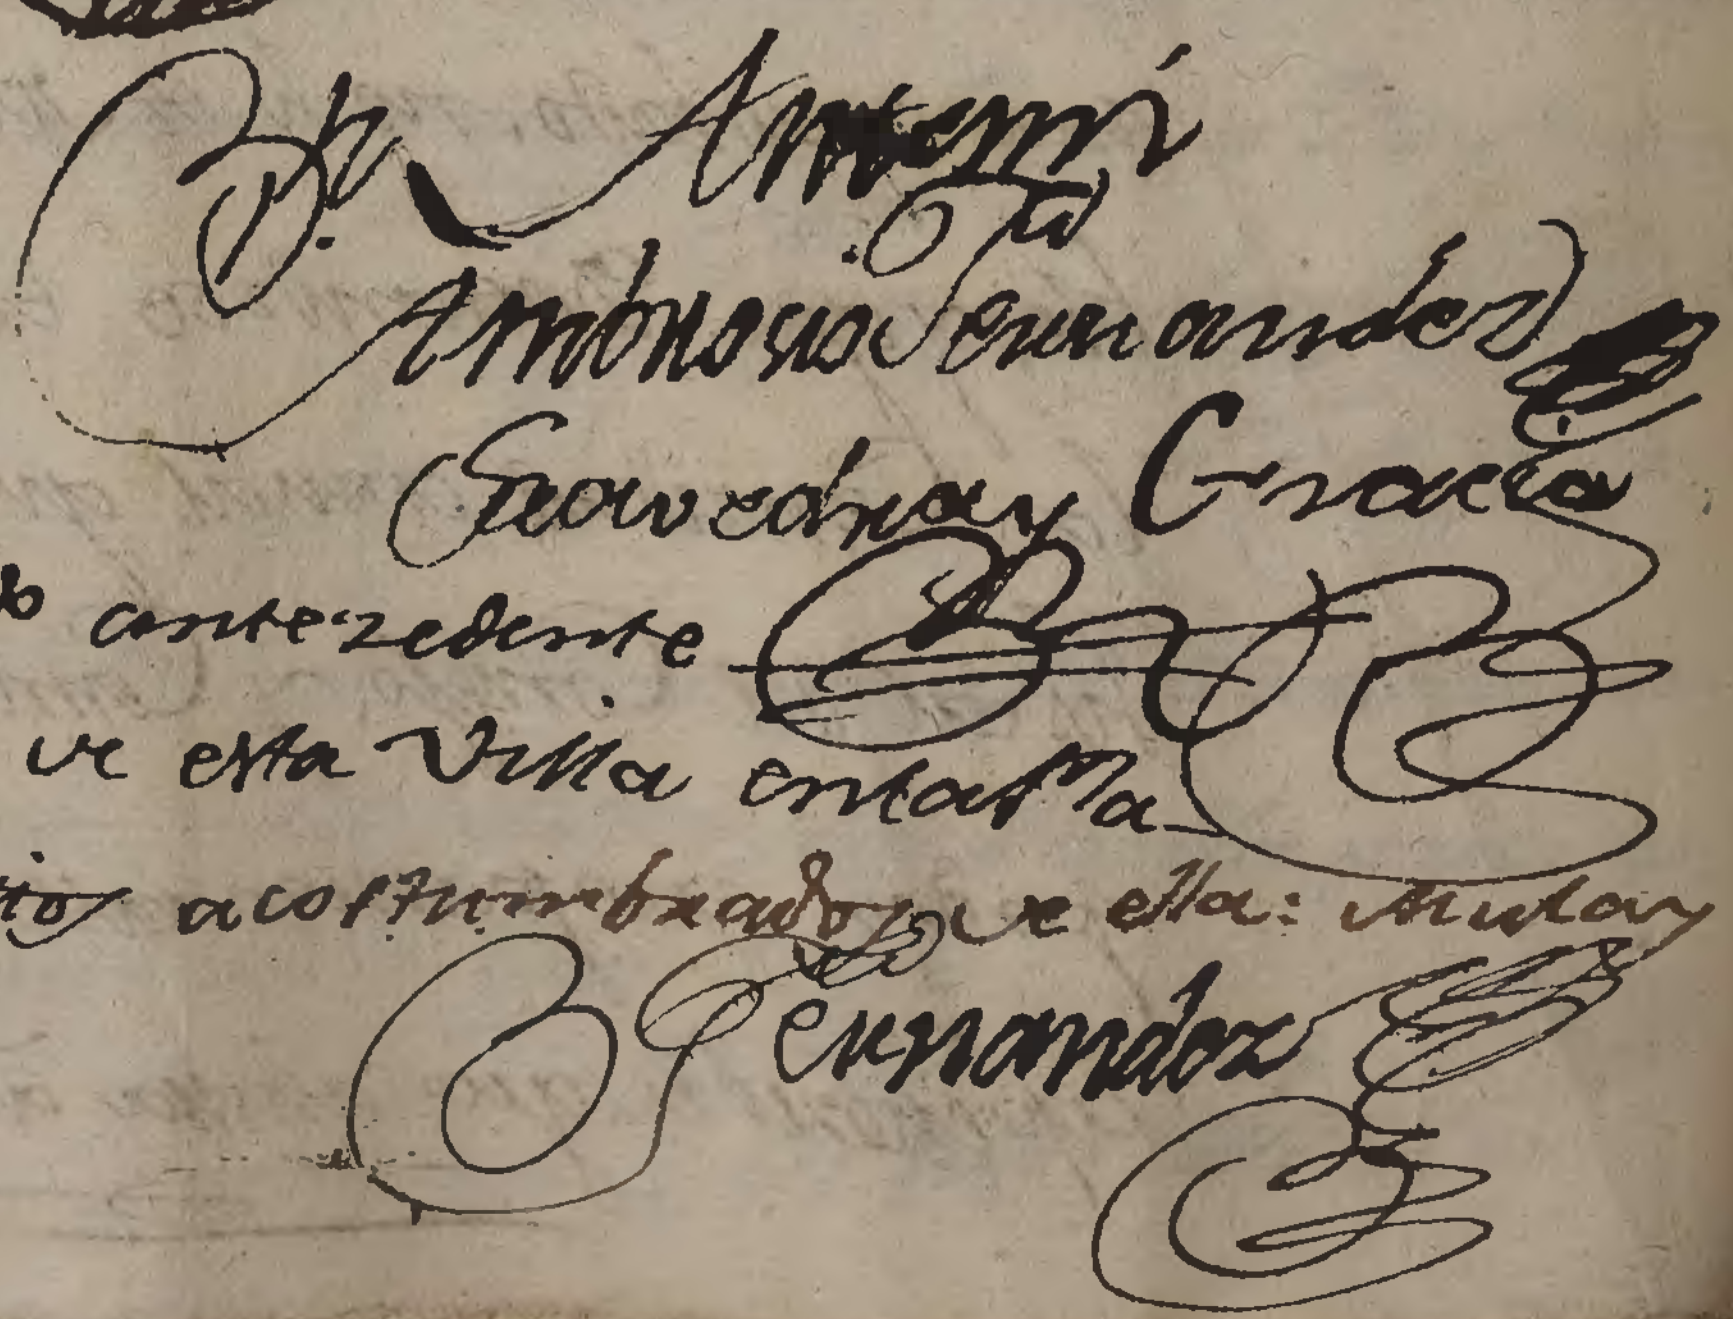 Antemi
Ambrosio Fernandez
Saavedra y Gracia
antezedente
de esta Villa enlaPla
acostumbrados de ella: Mula y
Fernandez